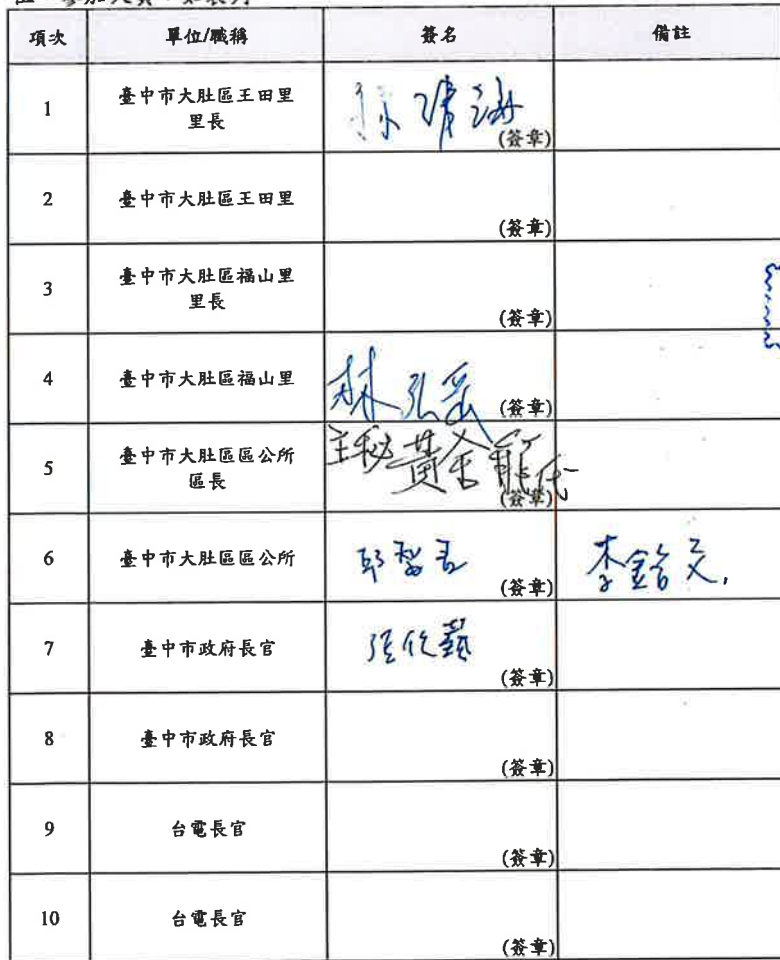 項次 單位/職稱 簽名 備註
1 臺中市大肚區王田里
里長 (簽章)
2 臺中市大肚區王田里 (簽章)
3 臺中市大肚區福山里
里長 (簽章)
4 臺中市大肚區福山里 林弘 (簽章)
5 臺中市大肚區區公所
區長 主秘 黃 代 (簽章)
6 臺中市大肚區區公所 (簽章) 李 文
7 臺中市政府長官 張 (簽章)
8 臺中市政府長官 (簽章)
9 台電長官 (簽章)
10 台電長官 (簽章)